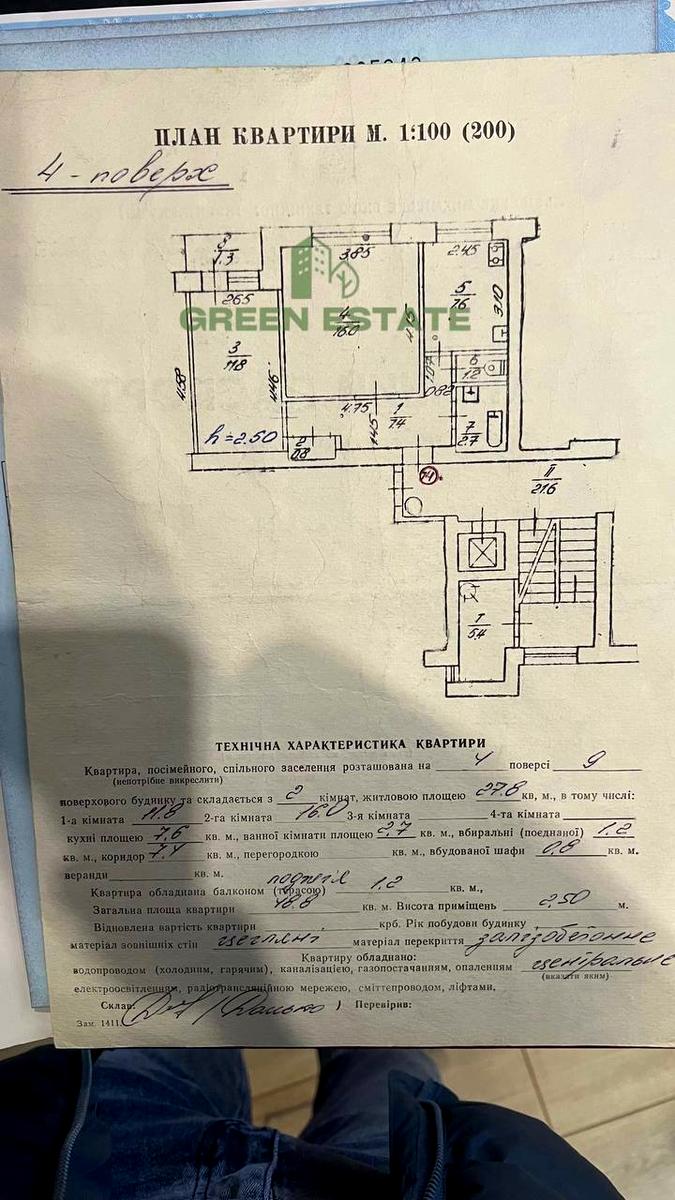 ПЛАН КВАРТИРИ М. 1:100 (200)
4 - поверх
8
1.3
3.85
2.45
2.65
5
7.6
3.10
GREEN ESTATE
4
16.0
4.15
3
11.8
4.58
4.46
6
1.2
1.07
0.80
4.75
1
7.4
1.45
h=2.50
2
0.8
7
2.7
74
II
21.6
I
5.4
ТЕХНІЧНА ХАРАКТЕРИСТИКА КВАРТИРИ
Квартира, посімейного, спільного заселення розташована на 4 поверсі 9
(непотрібне викреслити)
поверхового будинку та складається з 2 кімнат, житловою площею 27.8 кв, м., в тому числі:
1-а кімната 11.8 2-га кімната 16.0 3-я кімната 4-та кімната
кухні площею 7,6 кв. м., ванної кімнати площею 2,7 кв. м., вбиральні (поєднаної) 1.2
кв. м., коридор 7.4 кв. м., перегородкою кв. м., вбудованої шафи 0,8 кв. м.
веранди кв. м.
Квартира обладнана балконом (терасою) лоджія 1.2 кв. м.,
Загальна площа квартири 48.8 кв. м. Висота приміщень 2,50 м.
Відновлена вартість квартири крб. Рік побудови будинку
матеріал зовнішніх стін цегляні матеріал перекриття залізобетонне
Квартиру обладнано:
водопроводом (холодним, гарячим), каналізацією, газопостачанням, опаленням центральне
(вказати яким)
електроосвітленням, радіотрансляційною мережею, сміттепроводом, ліфтами,
Склав: ) Перевірив:
Зам. 1411